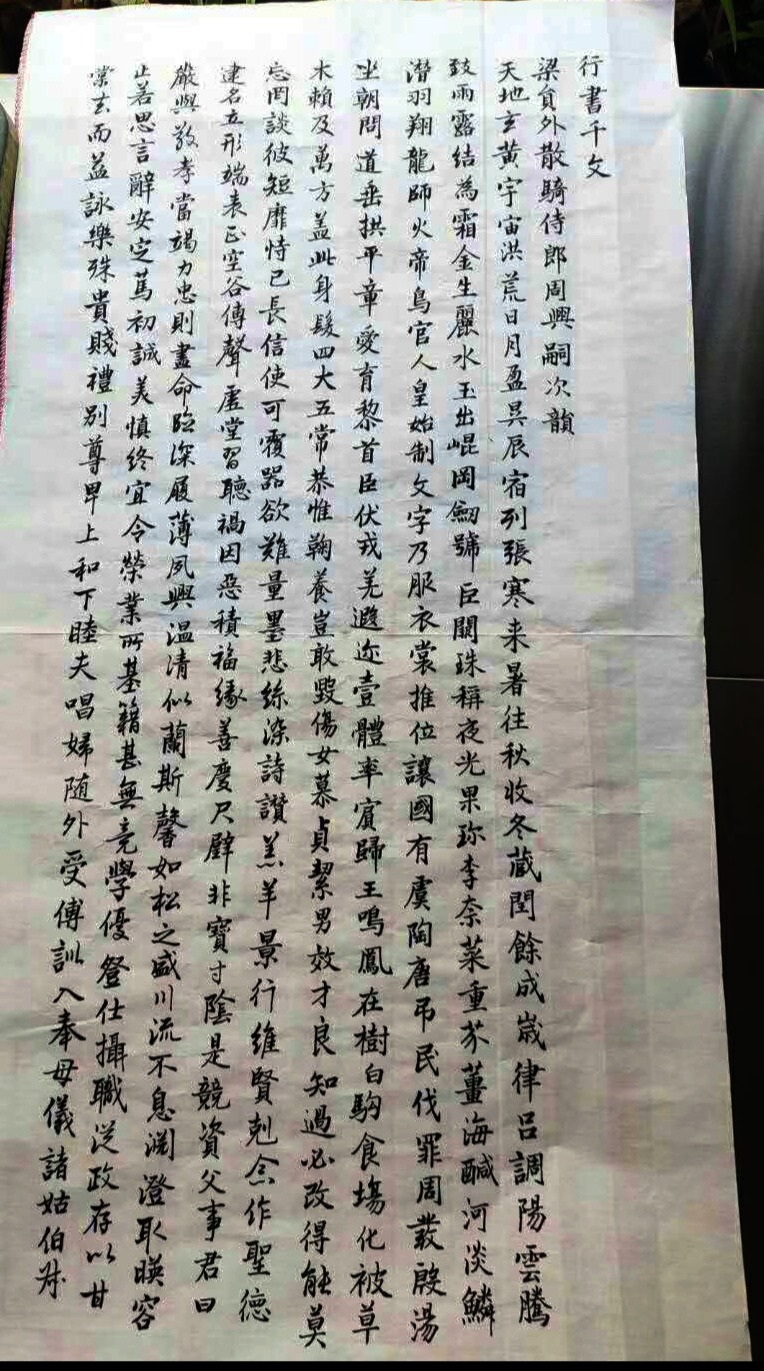 行書千文
梁員外散騎侍郎周興嗣次韻
天地玄黃宇宙洪荒日月盈昃辰宿列張寒来暑往秋收冬藏閏餘成歲律呂調陽雲騰
致雨露結為霜金生麗水玉出崐岡劒號巨闕珠稱夜光果珎李柰菜重芥薑海醎河淡鱗
潛羽翔龍師火帝鳥官人皇始制文字乃服衣裳推位讓國有虞陶唐吊民伐罪周發殷湯
坐朝問道垂拱平章愛育黎首臣伏戎羌遐迩壹體率賓歸王鳴鳳在樹白駒食塲化被草
木賴及萬方盖此身髮四大五常恭惟鞠養豈敢毀傷女慕貞絜男效才良知過必改得能莫
忘罔談彼短靡恃己長信使可覆器欲難量墨悲絲染詩讚羔羊景行維賢剋念作聖德
建名立形端表正空谷傳聲虛堂習聽禍因惡積福緣善慶尺璧非寶寸陰是競資父事君曰
嚴與敬孝當竭力忠則盡命臨深履薄夙興温清似蘭斯馨如松之盛川流不息淵澄取暎容
止若思言辭安定篤初誠美慎終宜令榮業所基籍甚無竟學優登仕攝職從政存以甘
棠去而益詠樂殊貴賤禮別尊卑上和下睦夫唱婦随外受傅訓入奉母儀諸姑伯叔